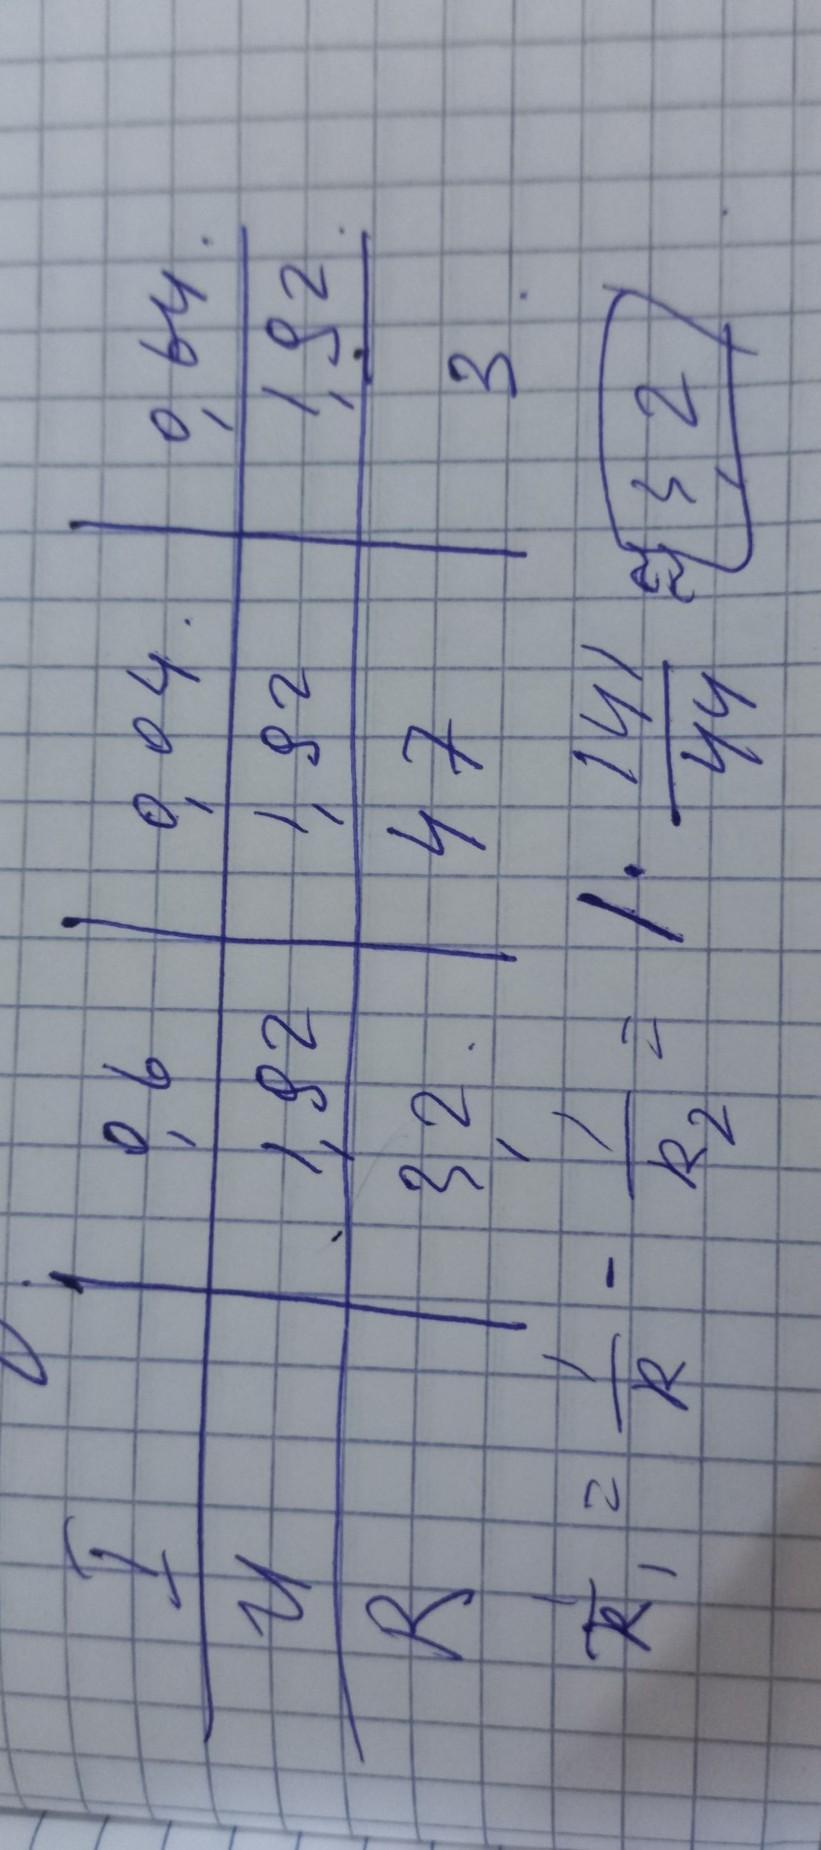 I 0,6 0,04. 0,64.
U 1,92 1,92 1,92.
R 3,2. 47 3
1/R₁ = 1/R - 1/R₂ = 1 · 141/44 ≈ 3,2